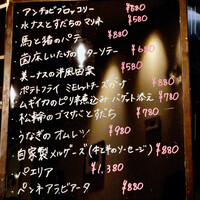 ・アンチョビブロッコリー ¥580
・水ナスとすだちのマリネ ¥580
・馬と猪のパテ ¥880
・しいたけのバターソテー ¥680
・ナスの洋風田楽 ¥580
・ポテトフライ ミモレットチーズ ¥680
・ムギイカのピリ辛煮込み バゲット添え ¥780
・松輪のゴマサバとすだち ¥780
・うなぎのオムレツ ¥980
・自家製メルゲーズ(牛と羊のソーセージ) ¥880
・パエリア ¥1,380
・ペンネアラビアータ ¥880